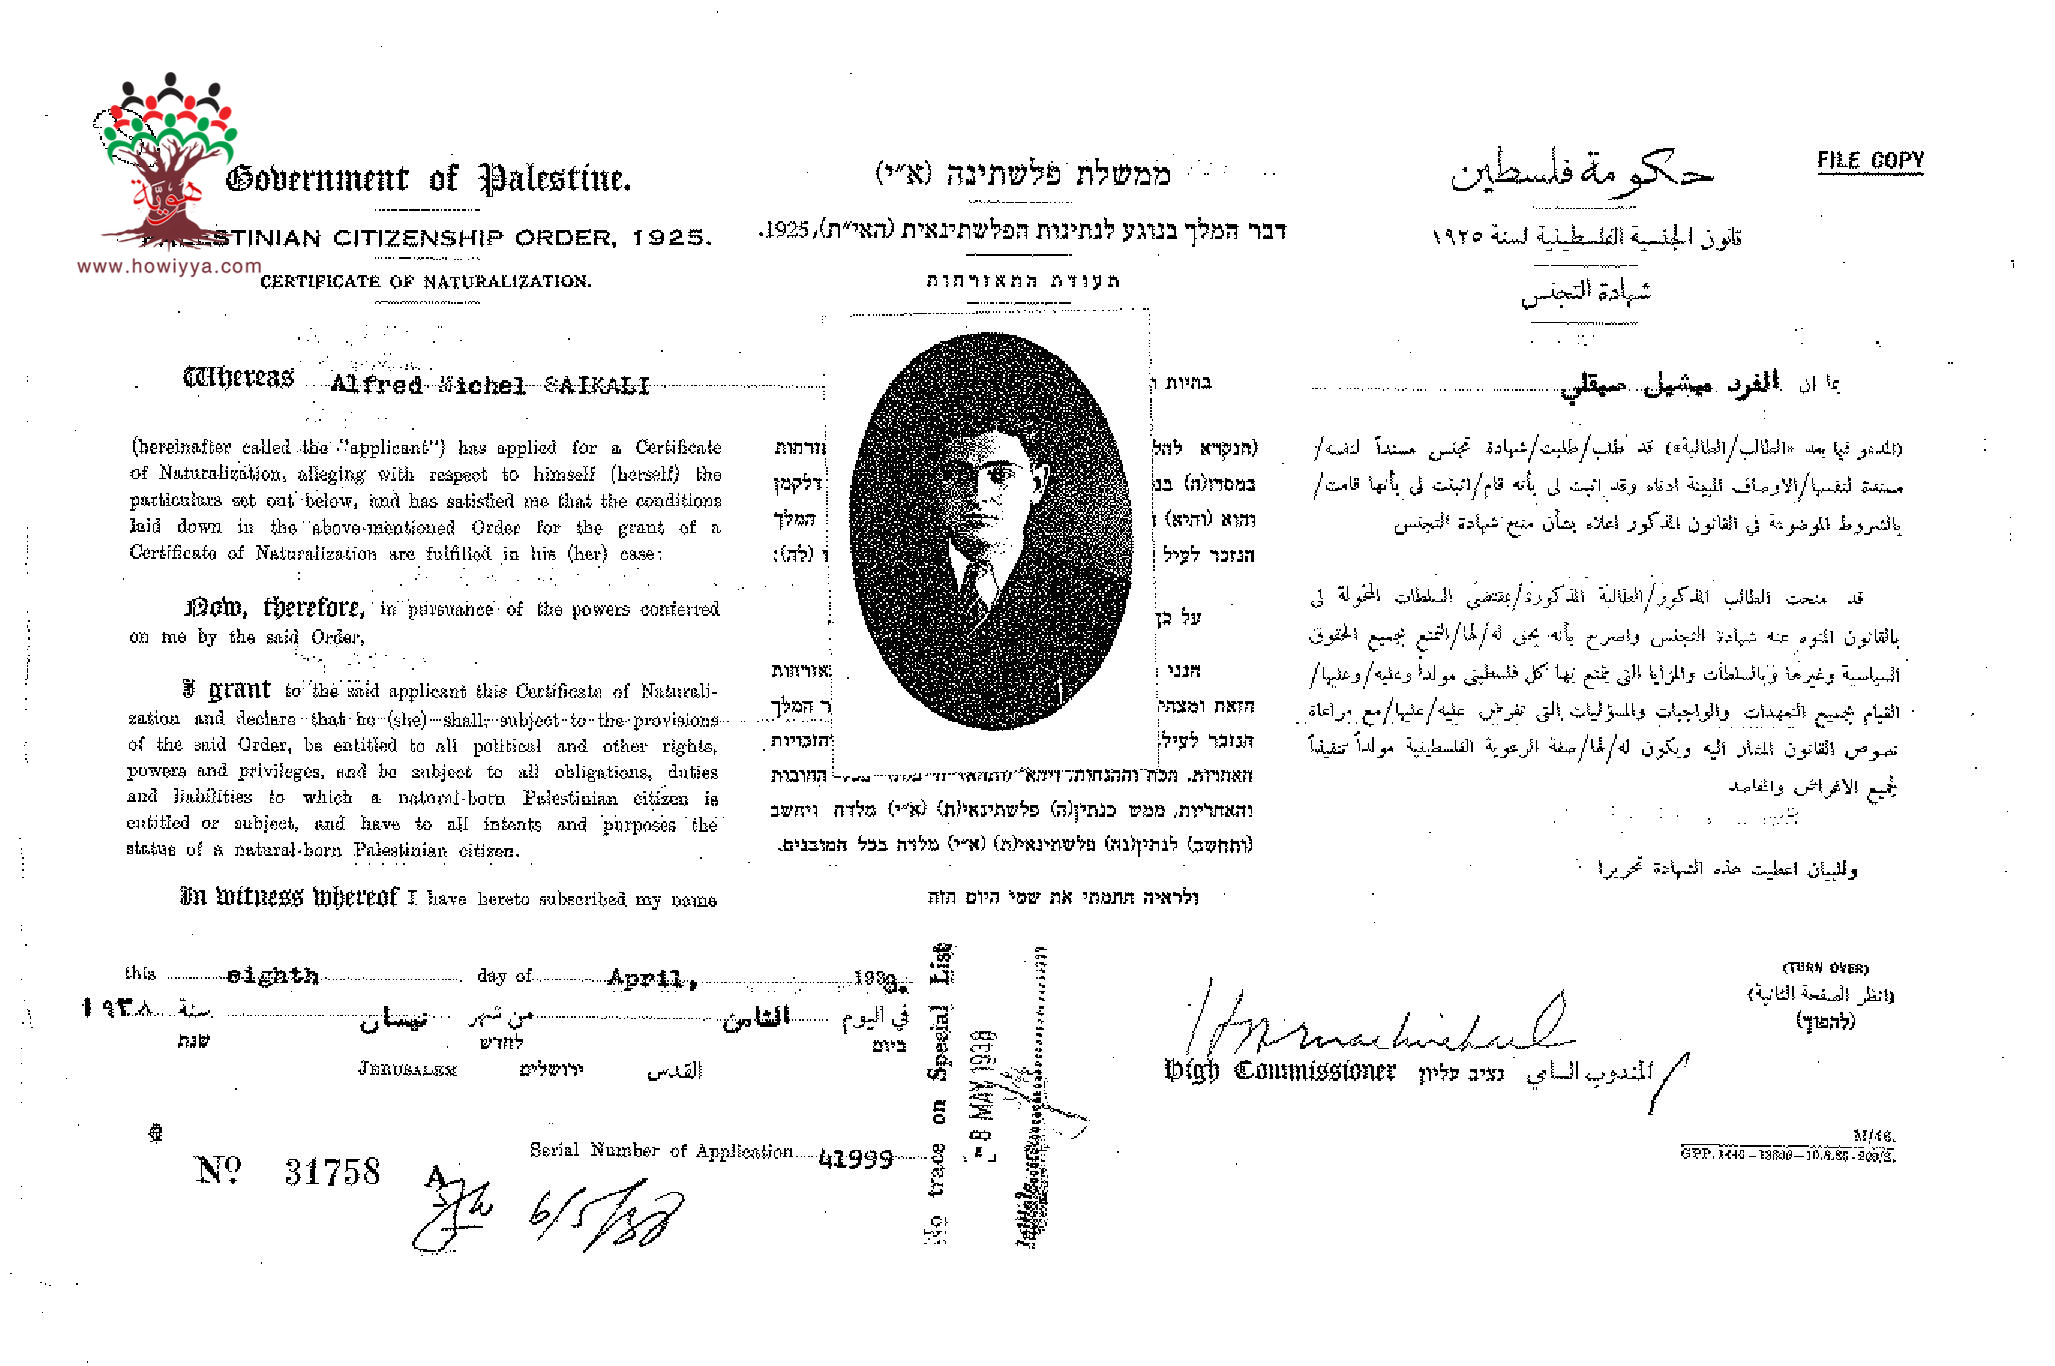 هوية
www.howiyya.com
Government of Palestine.
PALESTINIAN CITIZENSHIP ORDER, 1925.
CERTIFICATE OF NATURALIZATION.
Whereas Alfred Michel SAIKALI
(hereinafter called the "applicant") has applied for a Certificate
of Naturalization, alleging with respect to himself (herself) the
particulars set out below, and has satisfied me that the conditions
laid down in the above-mentioned Order for the grant of a
Certificate of Naturalization are fulfilled in his (her) case:
Now, therefore, in pursuance of the powers conferred
on me by the said Order,
I grant to the said applicant this Certificate of Naturali-
zation and declare that he (she) shall, subject to the provisions
of the said Order, be entitled to all political and other rights,
powers and privileges, and be subject to all obligations, duties
and liabilities to which a natural-born Palestinian citizen is
entitled or subject, and have to all intents and purposes the
status of a natural-born Palestinian citizen.
In witness whereof I have hereto subscribed my name
ממשלת פלשתינה (א״י)
דבר המלך בנוגע לנתינות הפלשתינאית (הא״ית), 1925.
תעודת התאזרחות
בהיות
(הנקרא להל
אזרחות
במסדו(ת) בנ
דלקמן
והוא (והיא)
המלך
הנזכר לעיל
(לה):
על כן
הנני
אזרחות
הזאת ומצהי
ר המלך
הנזכר לעיל
הזכויות
החובות
והאחריות, ממש כנתין(ה) פלשתינאי(ת) (א״י) מלדה ויחשב
(ותחשב) לנתין(נה) פלשתינאי(ת) (א״י) מלדה בכל המובנים.
ולראיה חתמתי את שמי היום הזה
حكومة فلسطين
قانون الجنسية الفلسطينية لسنة ١٩٢٥
شهادة التجنس
بما ان الفرد ميشيل صيقلي
(المدعو فيما بعد «الطالب/الطالبة») قد طلب/طلبت/شهادة تجنس مسنداً لنفسه/
مسندة لنفسها/الاوصاف المبينة ادناه وقد اثبت لي بأنه قام/اثبتت لي بأنها قامت/
بالشروط الموضوعة في القانون المذكور اعلاه بشأن منح شهادة التجنس
قد منحت الطالب المذكور/الطالبة المذكورة/بمقتضى السلطات المخولة لي
بالقانون المنوه عنه شهادة التجنس واصرح بأنه يحق له/لها/التمتع بجميع الحقوق
السياسية وغيرها وبالسلطات والمزايا التي يتمتع بها كل فلسطيني مولداً وعليه/وعليها/
القيام بجميع التعهدات والواجبات والمسؤليات التي تفرض عليه/عليها/مع مراعاة
نصوص القانون المشار اليه ويكون له/لها/صفة الرعوية الفلسطينية مولداً تنفيذاً
لجميع الاغراض والمقاصد
وللبيان اعطيت هذه الشهادة تحريرا
FILE COPY
this eighth day of April, 1938.
في اليوم الثامن من شهر نيسان سنة ١٩٣٨
ביום לחדש שנת
JERUSALEM ירושלים القدس
No trace on Special List
- 8 MAY 1938
High Commissioner נציב עליון المندوب السامي
(TURN OVER)
(انظر الصفحة الثانية)
(להפוך)
No. 31758 A
6/5/38
Serial Number of Application 41999